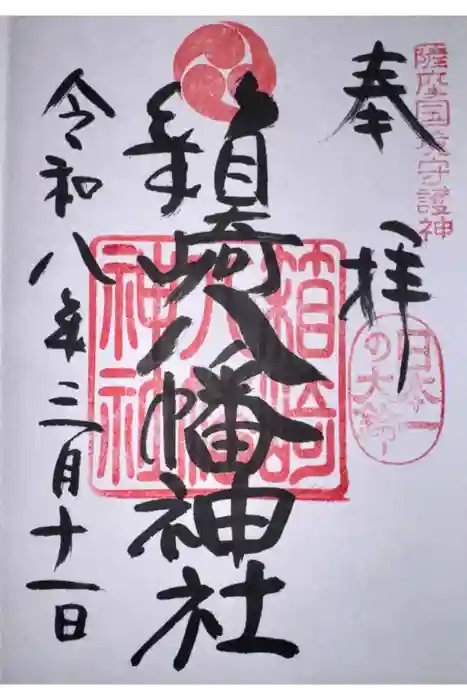 奉拝
薩摩国守護神
日本一の大鈴
箱崎八幡神社
箱崎八幡神社
令和八年三月十一日